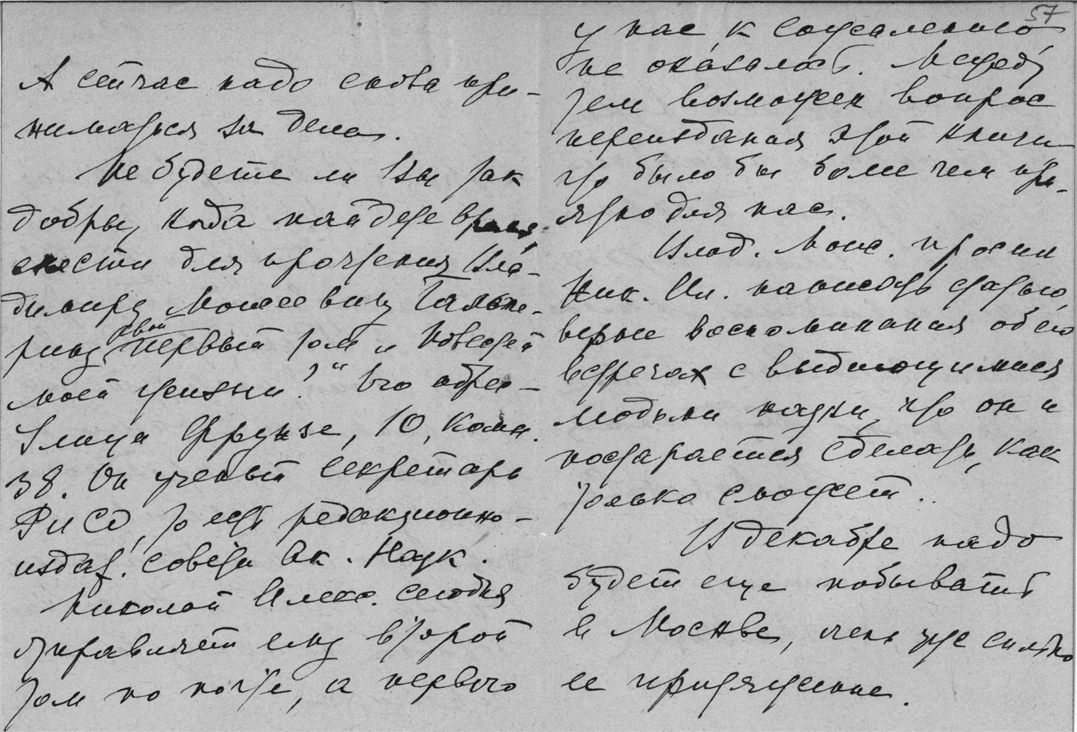 А сейчас надо снова при-
ниматься за дела.
Не будете ли Вы так
добры, когда найдете время,
снести для прочтения Вла-
димиру Моисеевичу Гальпе-
рину свой "первый том и Повестей
моей жизни?" Его адрес –
Улица Фрунзе, 10, комн.
38. Он ученый секретарь
РИСО, то есть редакционно-
издат. совета Ак. Наук.
Николай Алекс. сегодня
отправляет ему второй
том по почте, а первого
57
у нас, к сожалению
не оказалось. Между
тем возможен вопрос
переиздания этой книги
что было бы более чем при-
ятно для нас.
Влад. Моис. просил
Ник. Ал. написать статью
верные воспоминания об его
встречах с выдающимися
людьми науки, что он и
постарается сделать, как
только сможет.
В декабре надо
будет еще побывать
в Москве, очень уже сильно
ее притяжение.